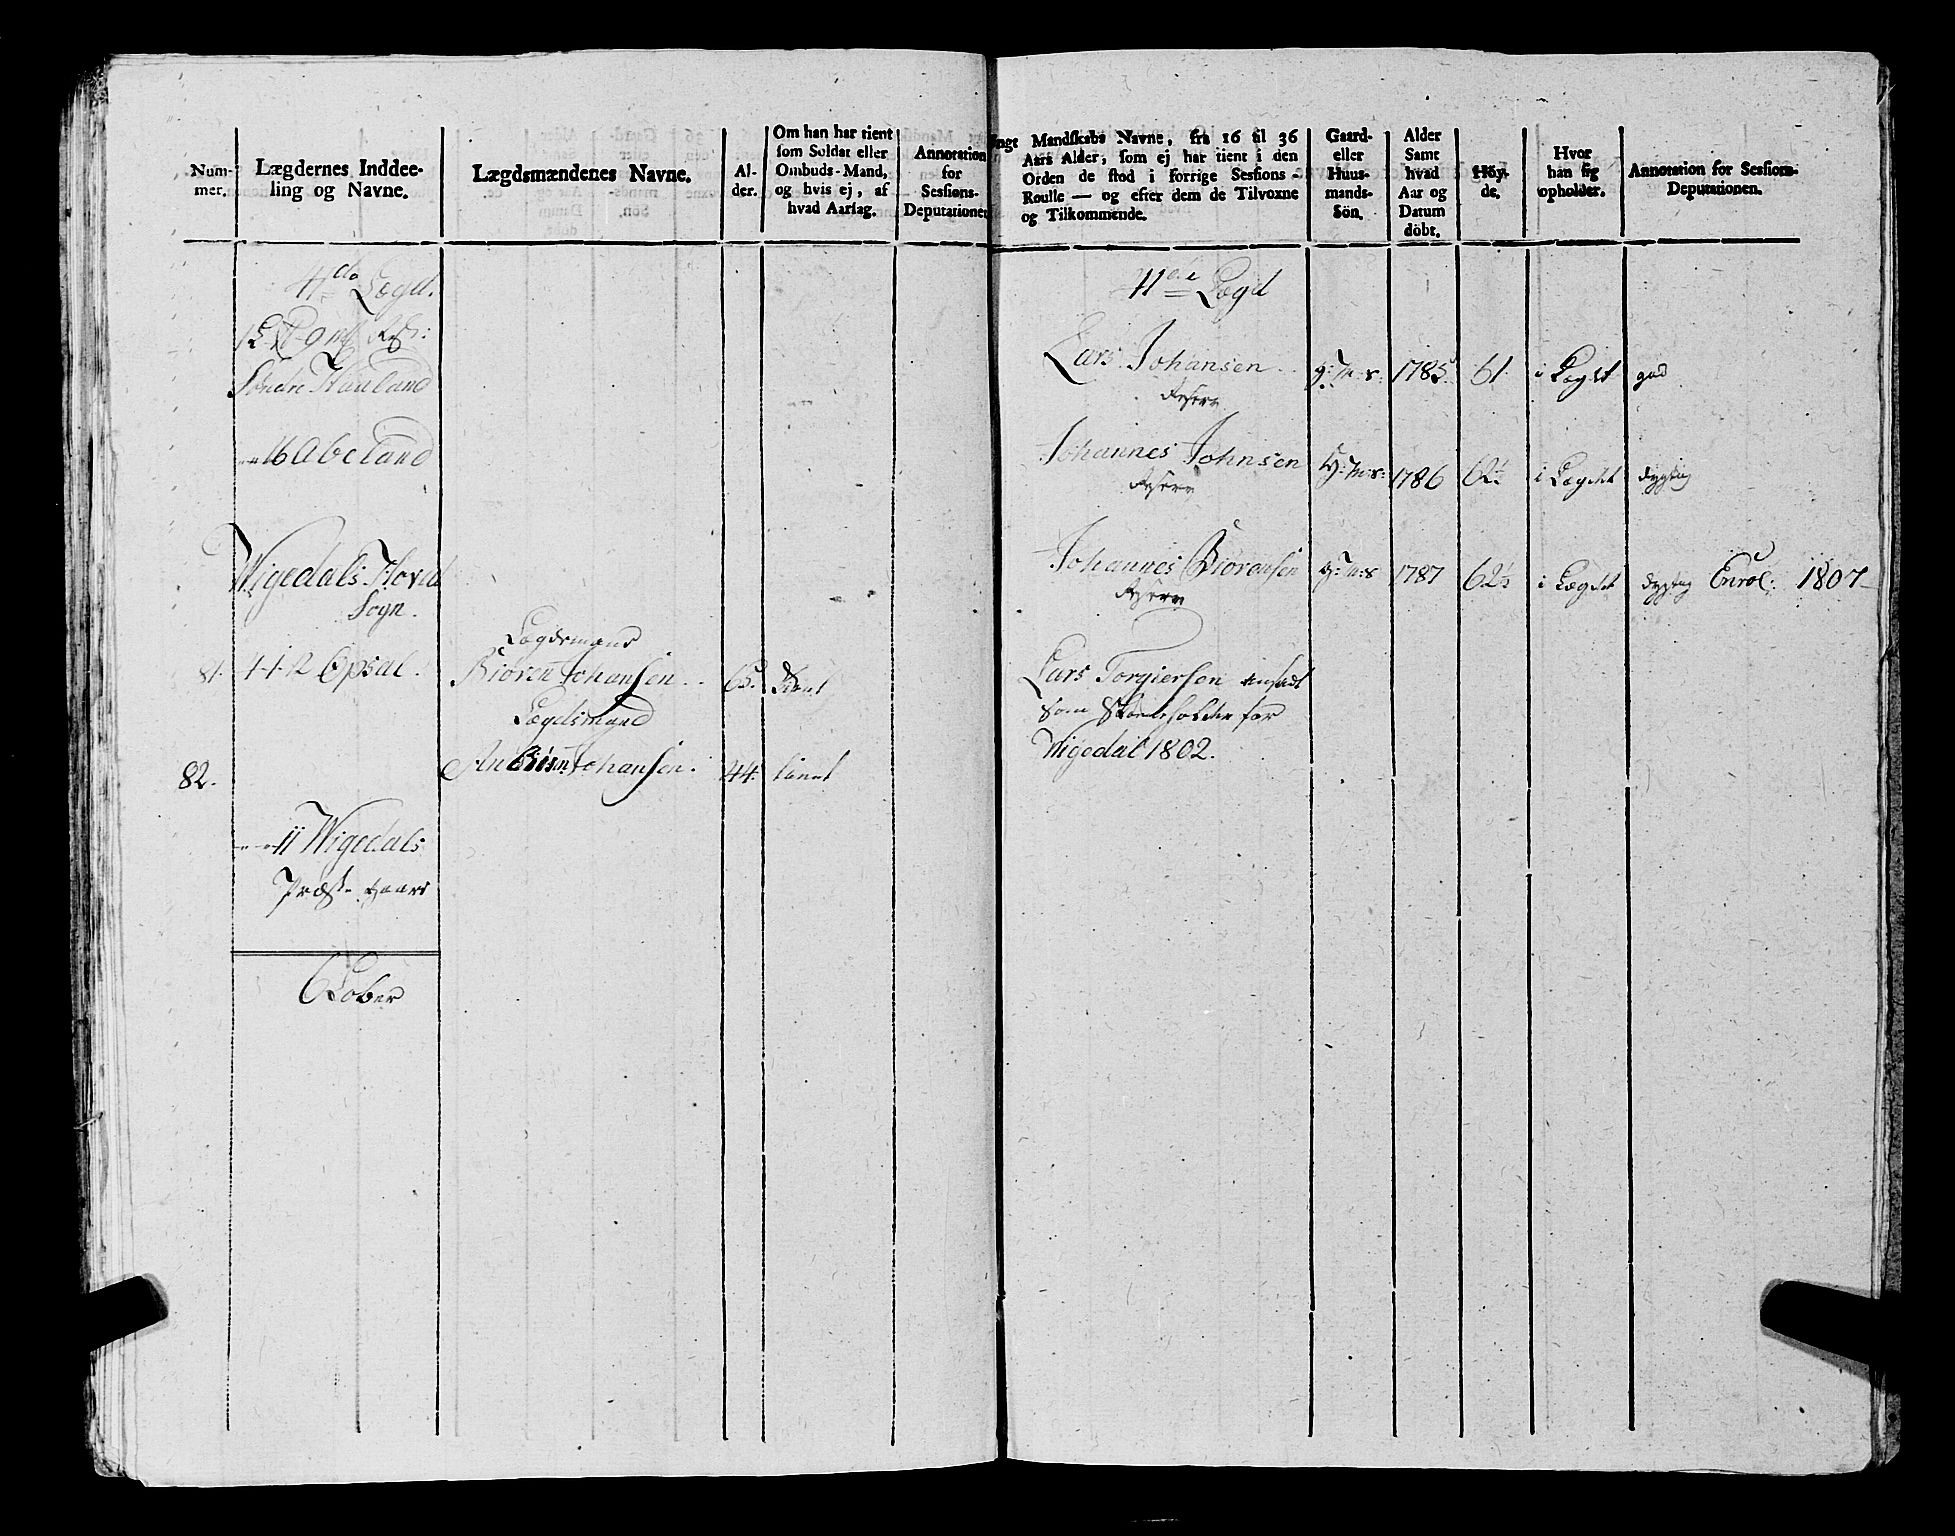 Num-
mer.
Lægdernes Inddee-
ling og Navne.
Lægdsmændenes Navne.
Al-
der.
Om han har tient
som Soldat eller
Ombuds-Mand,
og hvis ej, af
hvad Aarsag.
Annotation
for
Sessions-
Deputationen
11de Lægd.
Søndre Hauland
16 Abeland
Wigedals Hoved
Sogn.
81. 4-1-2 Opsal.
Lægdsmand
Biøren Johansen. 65. tient
Lægdsmand
82. Johansen. 44. tient
11 Wigedals
Præste-gaard
Unge Mandskabs Navne, fra 16 til 36
Aars Alder, som ej har tient i den
Orden de stod i forrige Sessions-
Roulle — og efter dem de Tilvoxne
og Tilkommende.
Gaard-
eller
Huus-
mands-
Sön.
Alder
Samt
hvad
Aar og
Datum
döbt.
Höy-
de.
Hvor
han sig
opholder.
Annotation for Sessions-
Deputationen.
11de Lægd
Lars Johansen g: m: s: 1785 61 i Lægdet god
Reserv
Johannes Johnsen g: m: s: 1786 62½ i Lægdet dygtig
Reserv
Johannes Biørensen g: m: s 1787 62½ i Lægdet dygtig Enrol: 1807
Reserv
Lars Torgiersen ansadt
som Skoleholder for
Wigedal 1802.